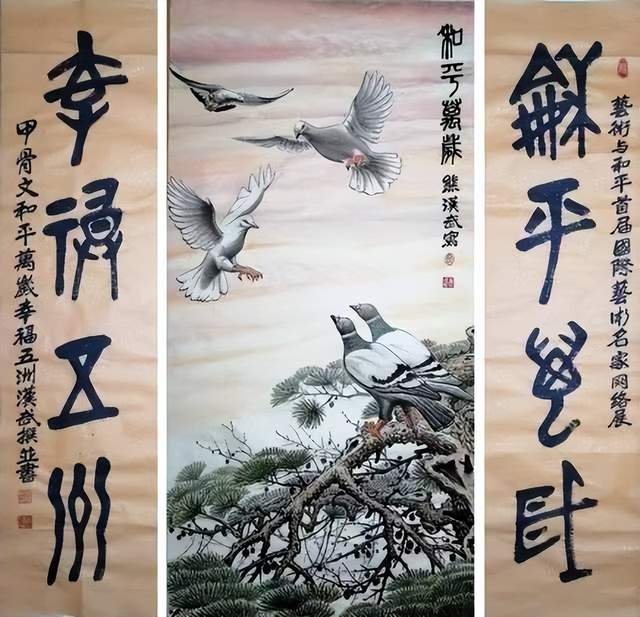 藝術与和平首届國際藝術名家网络展
龢平萬歲
和平萬歲
熊漢武寫
幸福五州
甲骨文和平萬歲幸福五洲漢武撰並書